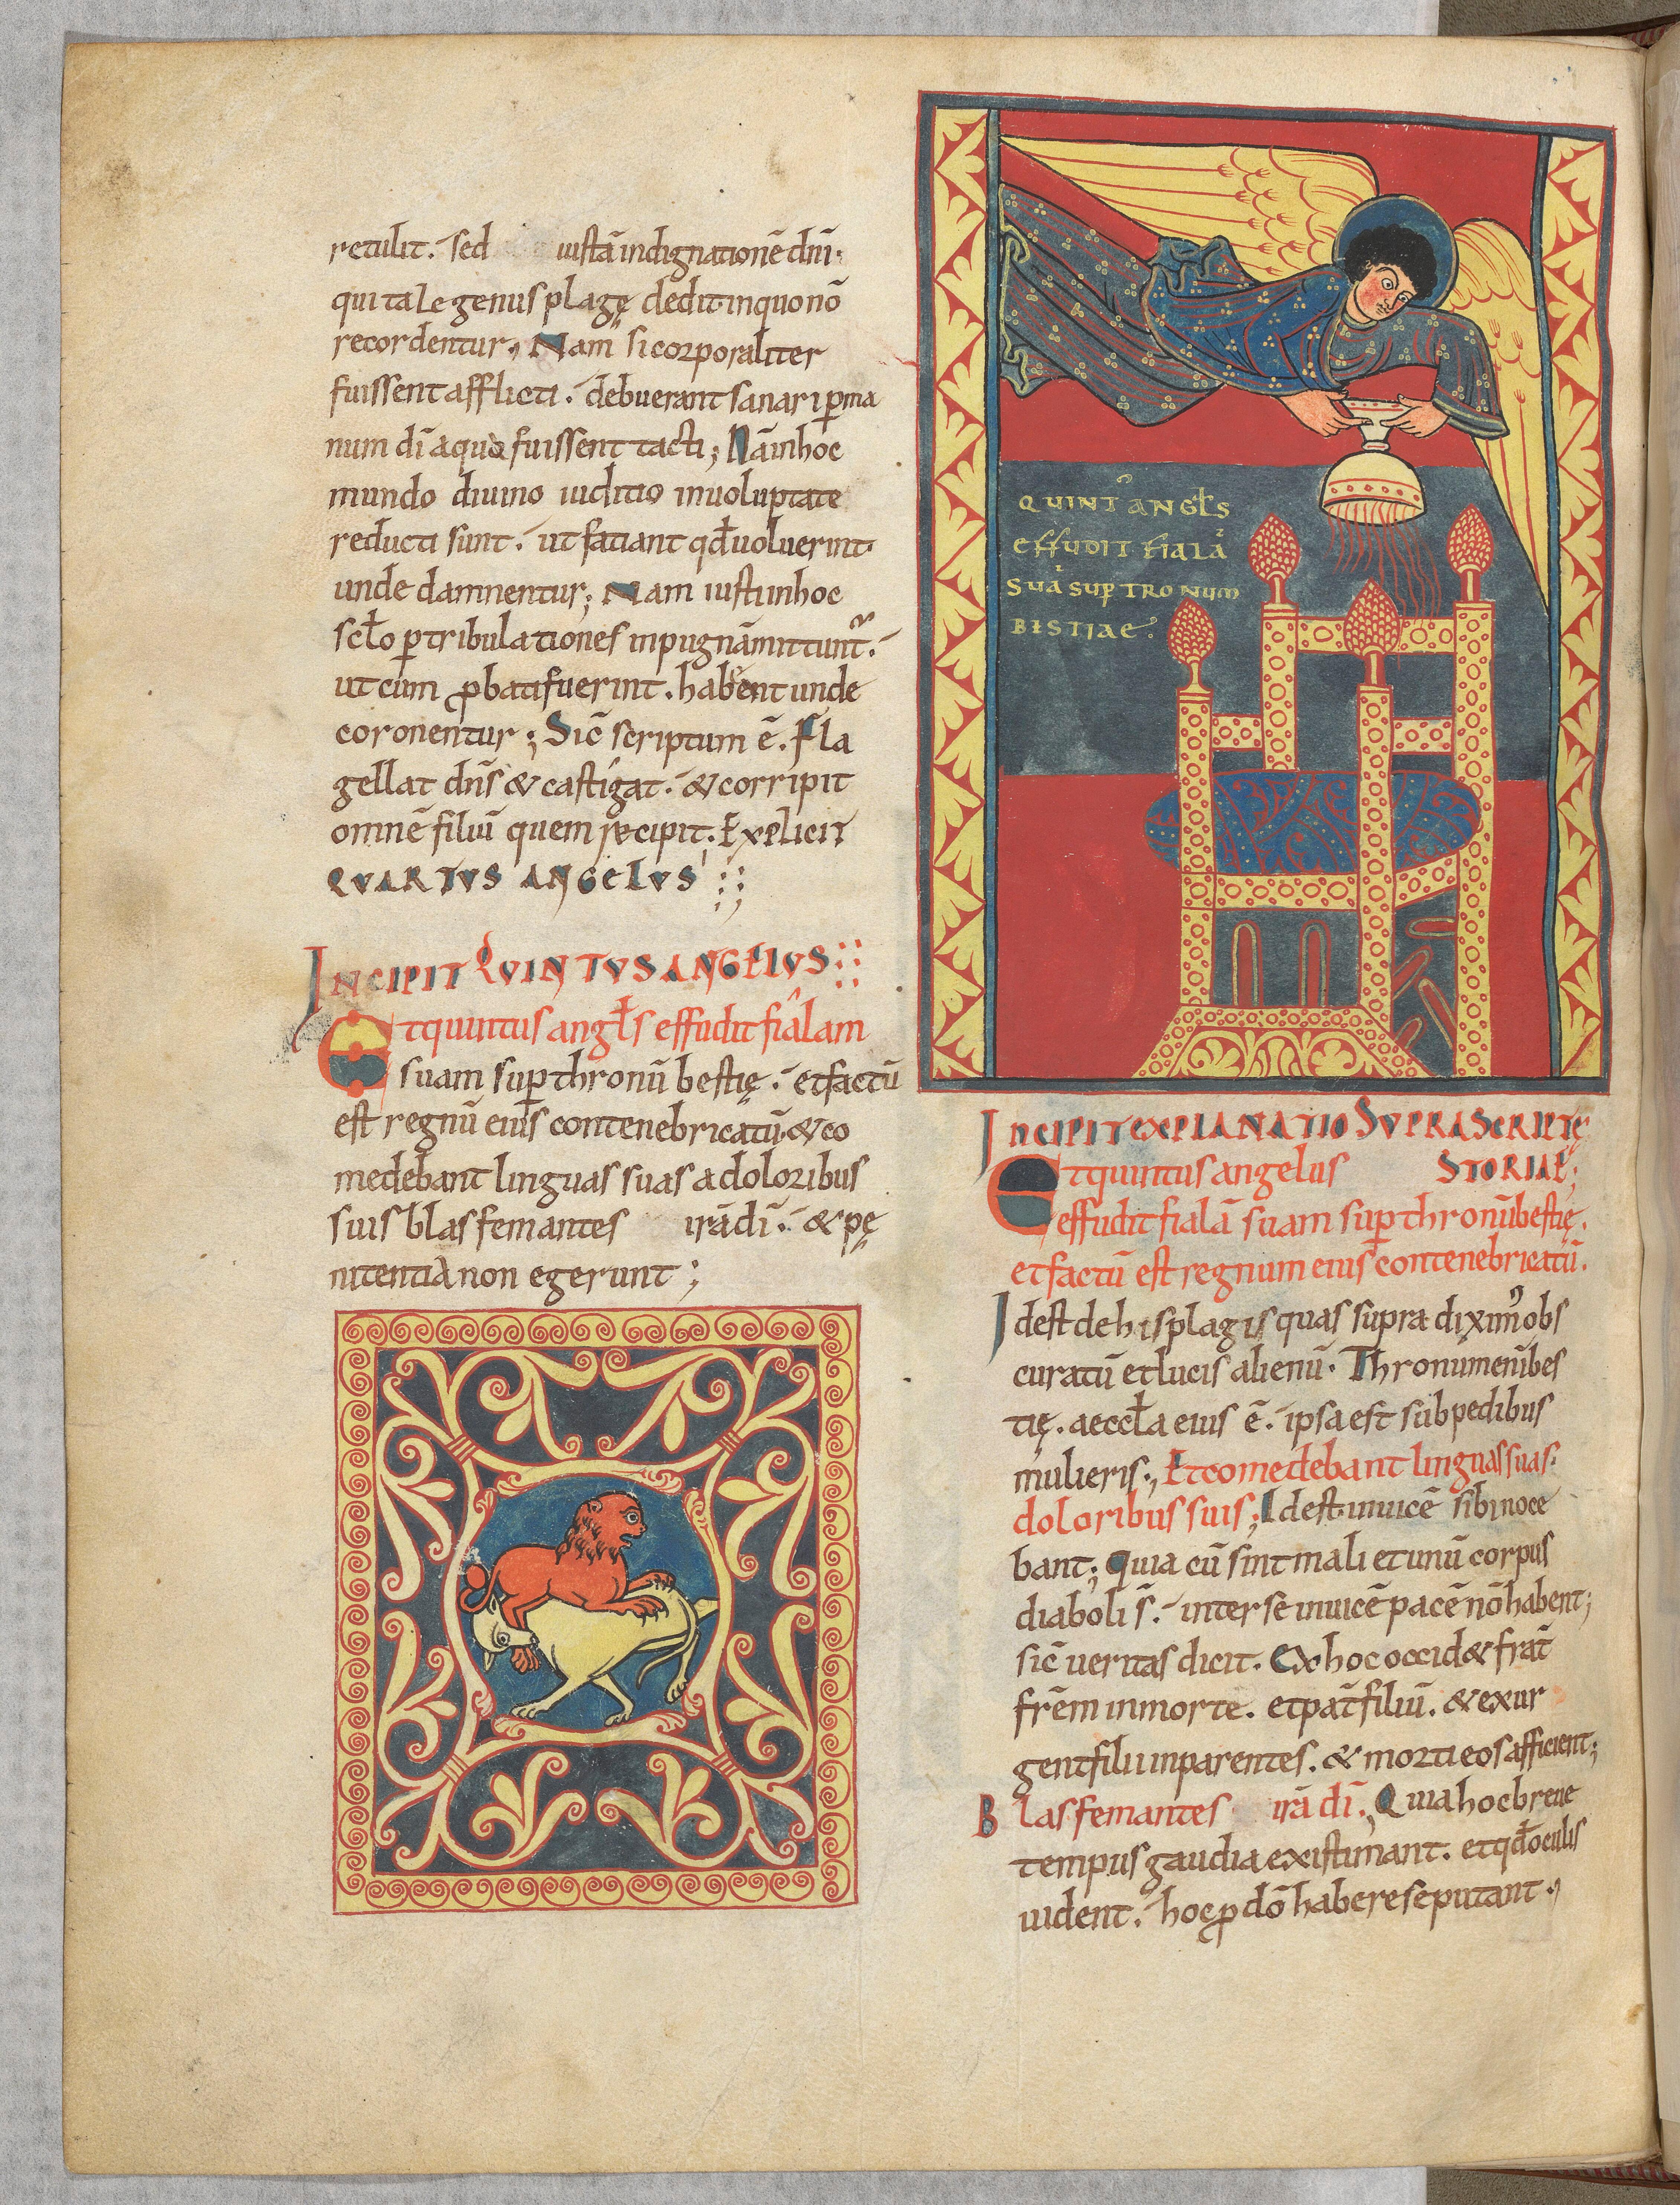 retulit. sed iustā indignationē dn̄i.
qui tale genus plagę dedit in quo nō
recordentur, Nam si corporaliter
fuissent afflicti. debuerant sanari p̄ ma
num dī a quo fuissent tacti; Nā in hoc
mundo diuino iuditio in uoluptate
reducti sunt. ut fatiant qd̄ uoluerint
unde damnentur; Nam iusti in hoc
scl̄o p̄ tribulationes in pugnā mittunt᷒.
ut cum ꝓbati fuerint. habeent unde
coronentur; Sic̄ scriptum ē. Fla
gellat dn̄s & castigat. & corripit
omnē filiū quem recipit. Explicit
QUARTUS ANGELUS
INCIPIT QUINTUS ANGELUS
Et quintus angl̄s effudit fialam
suam sup̄ thronū bestię. et factū
est regnū eius contenebricatū. & co
medebant linguas suas a doloribus
suis blasfemantes irā dī. & pę
nitentiā non egerunt;
QUINT᷒ ANGL̄S
EFFUDIT FIALĀ
SUĀ SUP̄ TRONUM
BISTIAE.
INCIPIT EXPLANATIO SUPRASCRIPTĘ
STORIAE;
Et quintus angelus
effudit fialā suam sup̄ thronū bestię.
et factū est regnum eius contenebricatū.
Id est de his plagis quas supra dixim᷒ obs
curatū et lucis alienū. Thronum eni᷒ bes
tię. aeccl̄a eius ē. ipsa est sub pedibus
mulieris., Et comedebant linguas suas.
doloribus suis; Id est inuicē sibi noce
bant; Quia cū sint mali et unū corpus
diaboli s̄. inter se inuicē pacē nō habent;
sic̄ ueritas dicit. Ex hoc occid& frat̄
frēm in morte. et pat̄ filiū. & exur
gent filii in parentes. & morti eos afficient;
Blasfemantes irā dī., Quia hoc breue
tempus gaudia existimant. et qd̄ oculis
uident. hoc ꝓ dō habere se putant,